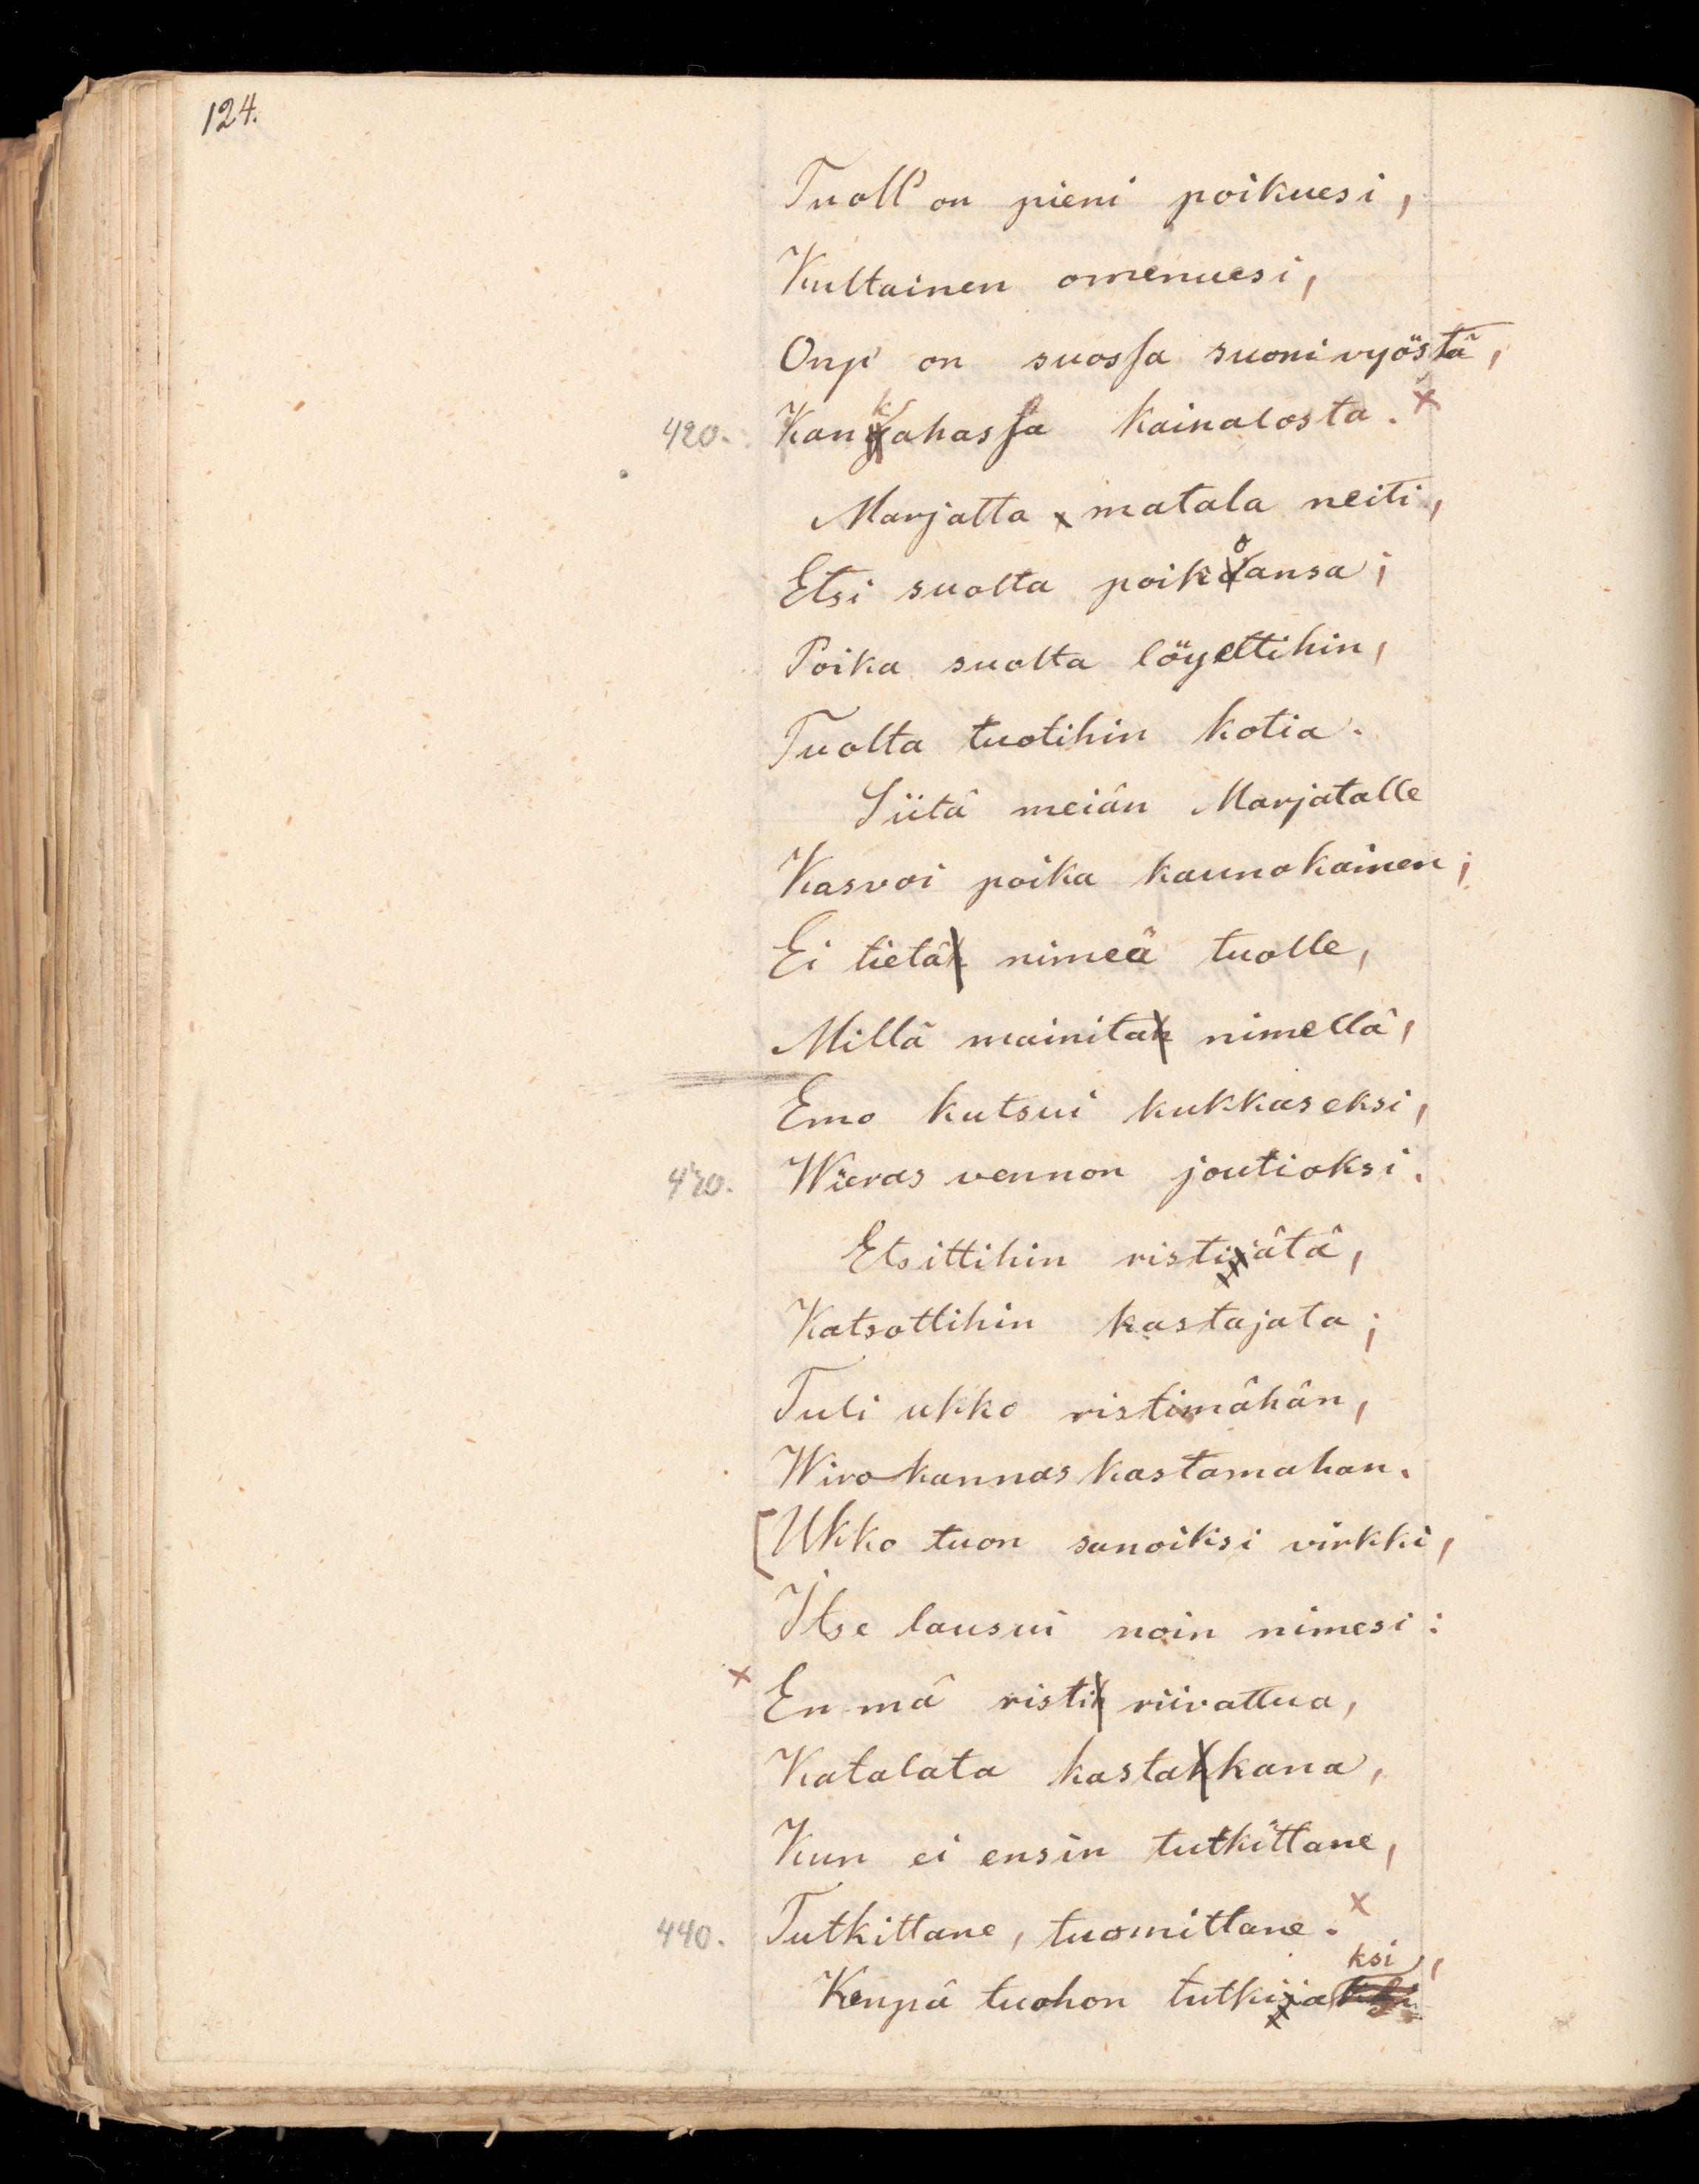 124.
Tuoll' on pieni poikuesi,
Kultainen omenuesi,
Onp' on suossa suonivyöstä,
420. Kankahassa kainalosta. x
Marjatta x matala neiti,
Etsi suolta poikoansa;
Poika suolta löyettihin,
Tuolta tuotihin kotia.
Siitä meiän Marjatalle
Kasvoi poika kaunokainen;
Ei tietä nimeä tuolle,
Millä mainita nimellä,
Emo kutsui kukkaseksi,
430. Wieras vennon joutioksi.
Etsittihin ristiätä,
Katsottihin kastajata;
Tuli ukko ristimähän,
Wirokannas kastamahan.
[Ukko tuon sanoiksi virkki,
Itse lausui noin nimesi:
x En mä risti riivattua,
Katalata kasta kana,
Kun ei ensin tutkittane,
440. Tutkittane, tuomittane. x
Kenpä tuohon tutkiaksi,